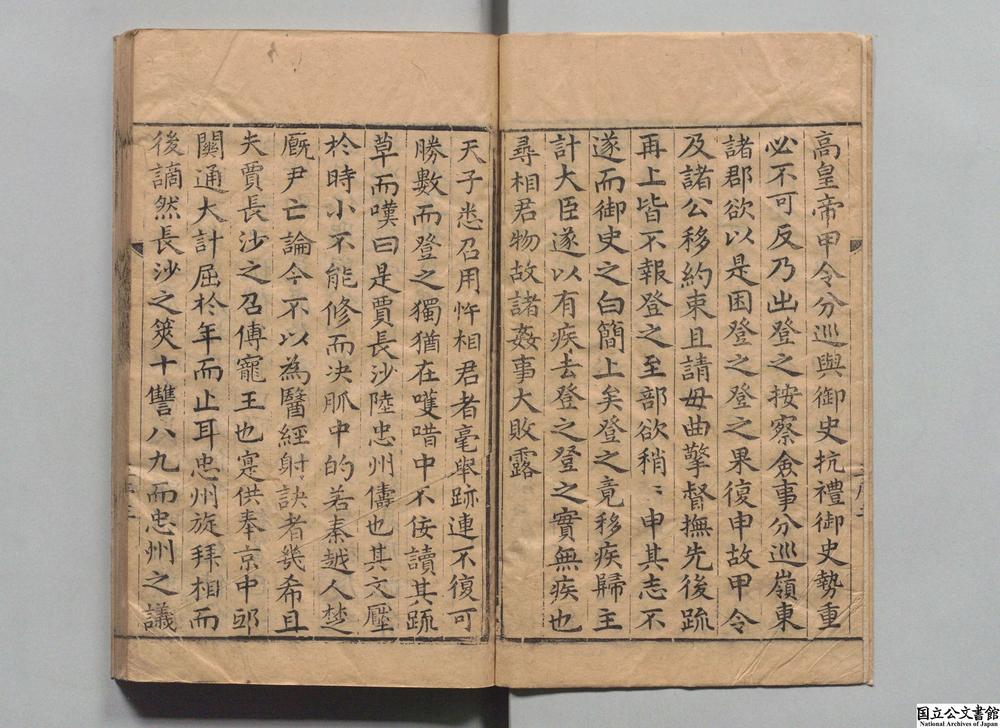 高皇帝甲令分巡與御史抗禮御史勢重
必不可反乃出登之按察僉事分巡嶺東
諸郡欲以是困登之登之果復申故甲令
及諸公移約束且請毋曲擎督撫先後䟽
再上皆不報登之至部欲稍〻申其志不
遂而御史之白簡上矣登之竟移疾歸主
計大臣遂以有疾去登之登之實無疾也
尋相君物故諸姦事大敗露
天子悉召用忤相君者毫舉跡連不復可
勝數而登之獨猶在嚄唶中不佞讀其䟽
草而嘆曰是賈長沙陸忠州儔也其文壓
於時小不能修而决脈中的若秦越人楚
廐尹亡論今不以為醫經射訣者幾希且
夫賈長沙之召傅寵王也寔供奉京中邸
關通大計屈於年而止耳忠州旋拜相而
後謫然長沙之筴十讐八九而忠州之議
國立公文書館
National Archives of Japan